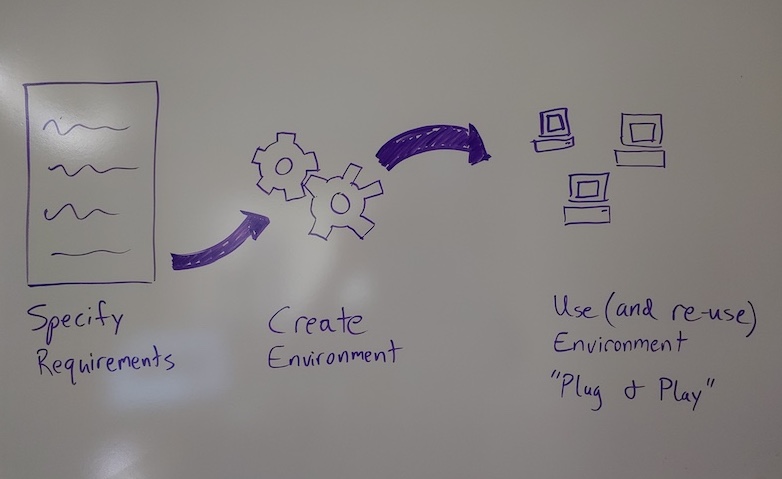 Specify
Requirements
Create
Environment
Use (and re-use)
Environment
"Plug & Play"